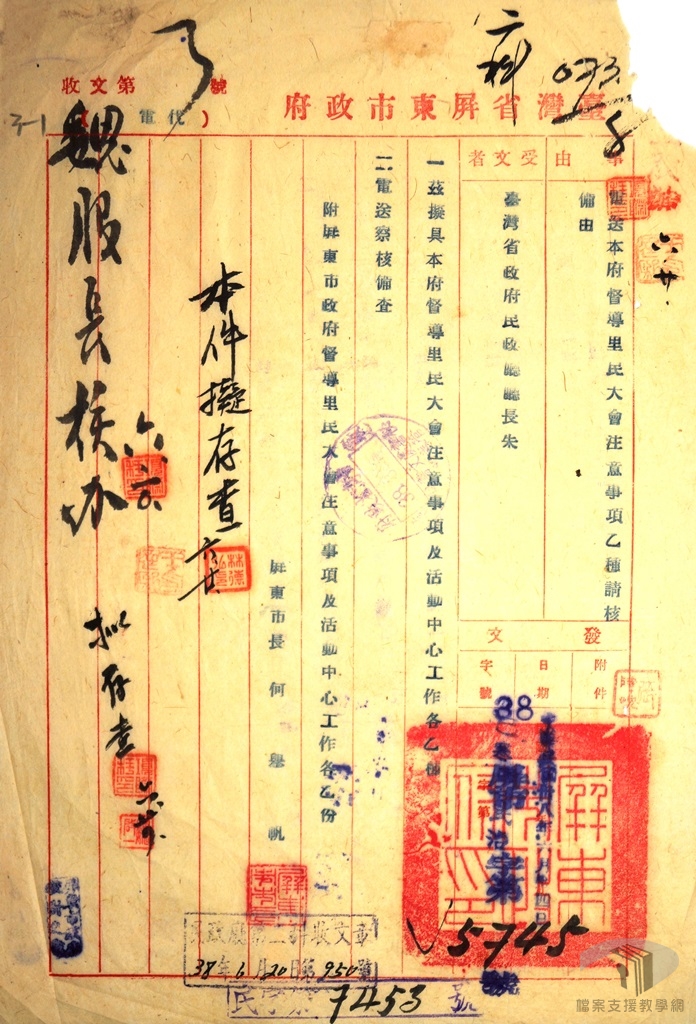 臺灣省屏東市政府(代電)
收文第 號
六科
073.
8
3-1
事由
電送本府督導里民大會注意事項乙種請核
備由
受文者
臺灣省政府民政廳廳長朱
發文
附件
日期
字號
38
屏市
字第
5745
號
一、茲擬具本府督導里民大會注意事項及活動中心工作各乙種
二、電送察核備查
附屏東市政府督導里民大會注意事項及活動中心工作各乙份
屏東市長何舉帆
本件擬存查
魏股長核办
六
擬存查
六廿
民政廳第二科收文章
38年6月20日第950號
民字第7453號
屏東
檔案支援教學網